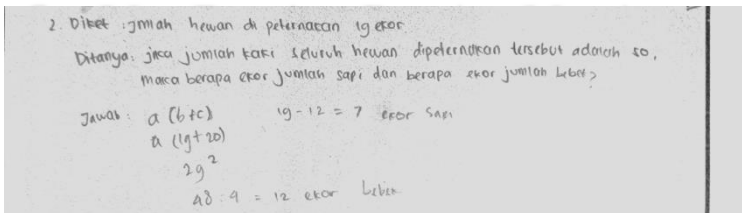 2. Diket : Jmlah hewan di peternakan 19 ekor
Ditanya : jika jumlah kaki seluruh hewan dipeternakan tersebut adalah 50,
maka berapa ekor jumlah sapi dan berapa ekor jumlah bebek?
Jawab : a (b+c) 19 - 12 = 7 ekor sapi
a (19+20)
29²
48 : 4 = 12 ekor bebek